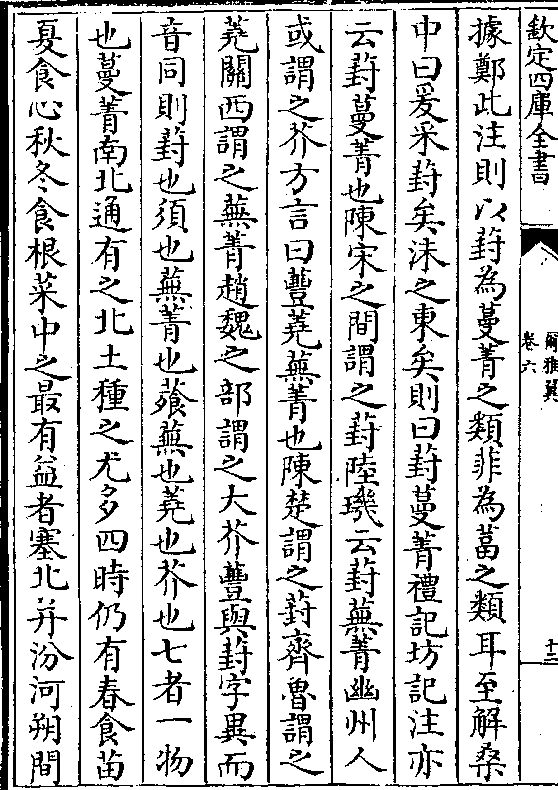 欽定四庫全書
爾雅翼
卷六
十二
據鄭此注則以葑為蔓菁之類菲為葍之類耳至解桑
中曰爰采葑矣沬之東矣則曰葑蔓菁禮記坊記注亦
云葑蔓菁也陳宋之間謂之葑陸璣云葑蕪菁幽州人
或謂之芥方言曰蘴蕘蕪菁也陳楚謂之葑齊魯謂之
蕘關西謂之蕪菁趙魏之部謂之大芥蘴與葑字異而
音同則葑也須也蕪菁也薞蕪也蕘也芥也七者一物
也蔓菁南北通有之北土種之尤多四時仍有春食苗
夏食心秋冬食根菜中之最有益者塞北并汾河朔間